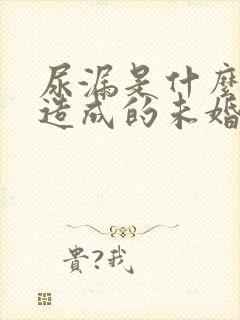 尿漏是什麼
造成的未婚
貴?我